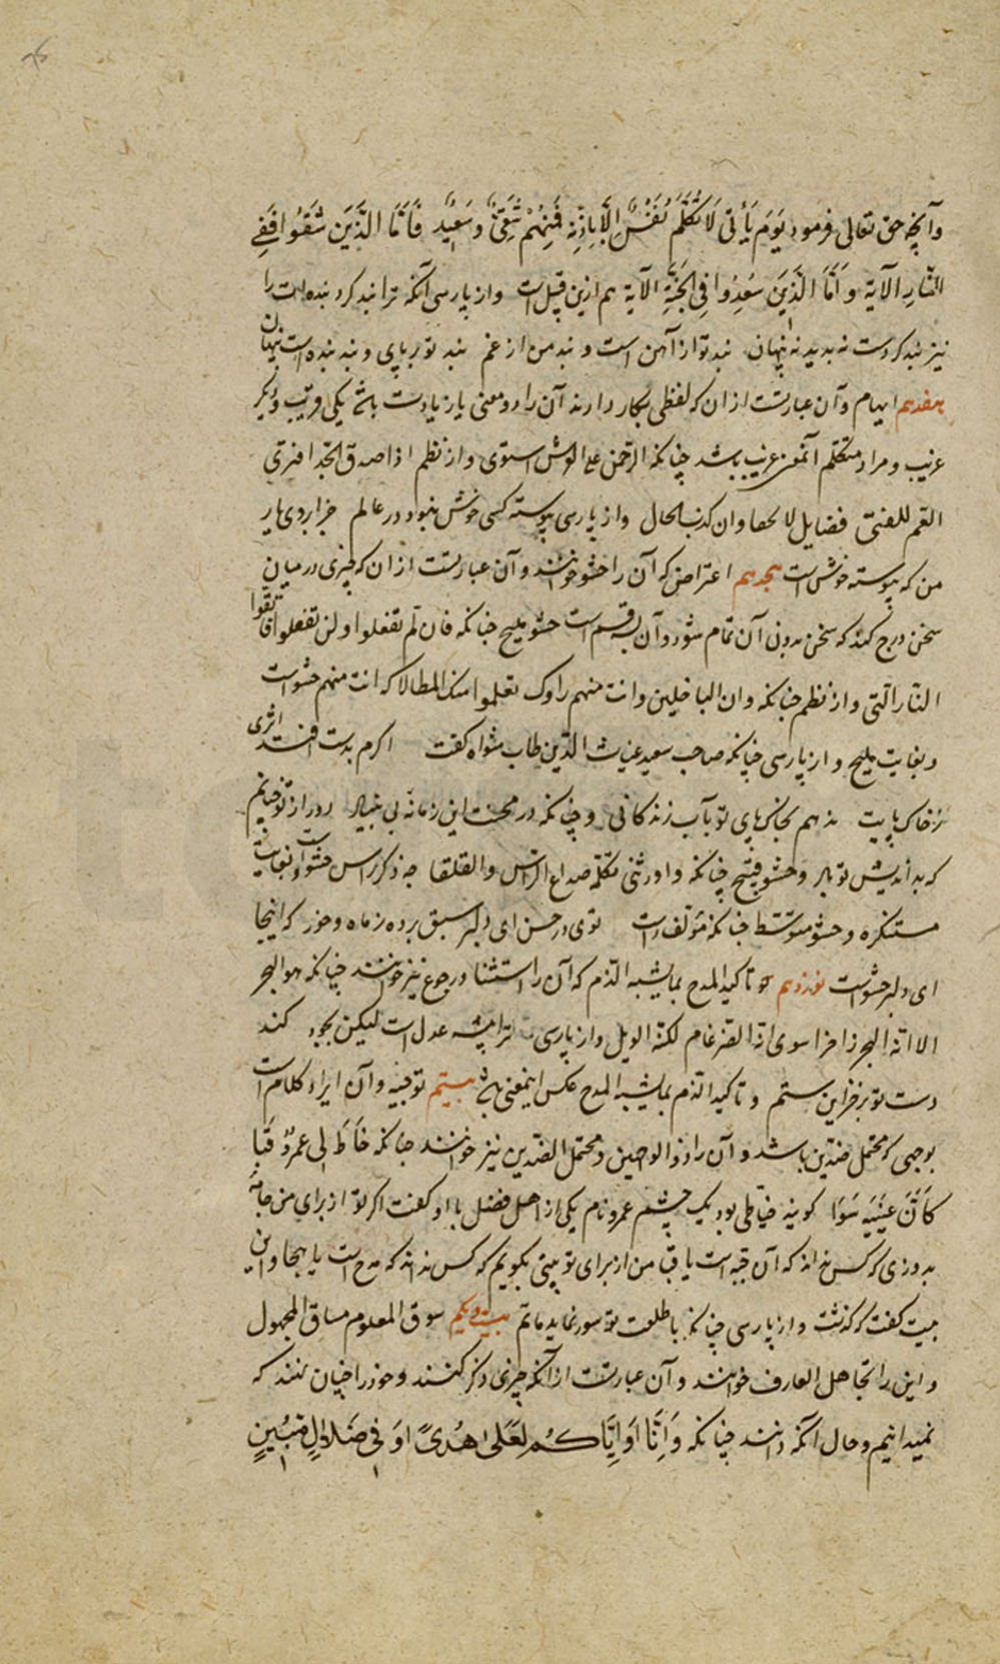 وآنچه حق تعالی فرمود یَوْمَ یَأْتی لَا تَکَلَّمُ نَفْسٌ اِلَّا بِاِذْنِهِ فَمِنْهُمْ شَقِیٌّ وَ سَعِیْدٌ فَاَمَّا الَّذِیْنَ شَقُوْا فَفِی
النّارِ الآیة وَ اَمَّا الَّذِیْنَ سُعِدُوا فِی الجَنَّةِ الآیة هم ازین قبیل است و از پارسی آنکه ترا بند کرد بنده است را
نیز بند کردست نه بدید نه پنهان بند تو از آهن است و بند من از غم بند تو بر پای و بند بنده است بر جان
هفدهم ایهام و آن عبارتست از ان که لفظی بکار دارند آن را دو معنی یا زیادت باشد یکی قریب و دیگر
غریب و مراد متکلم آنمعنی غریب باشد چنانکه الرحمن علی العرش استوی و از نظم اذا صدق الجد افتری
العم للفتی فضایل لا تحصا و ان کذب الخال و از پارسی پیوسته کسی خوش نبود در عالم جز ابروی یار
من که پیوسته خوش است هجدهم اعتراض که آن را حشو خوانند و آن عبارتست از ان که چیزی در میان
سخن درج کنند که سخن بدون آن تمام شود و آن بر سه قسم است حشو ملیح چنانکه فان لم تفعلوا ولن تفعلوا فاتقوا
النار الّتی و از نظم چنانکه وان الباخلین وانت منهم راوک تعلموا منک المطالا که انت منهم حشو است
و بغایت ملیح و از پارسی چنانکه صاحب سعید غیاث الدین طاب مثواه گفت اگرم بدست افتد اثری
زخاک پایت بدهم بخاک پای تو بآب زندگانی و چنانکه در محنت این زمانه بی بنیاد دور از تو چنانم
که بداندیش تو باد و حشو قبیح چنانکه و اورثنی تکلمه صداع الراس والقلقا چه ذکر راس حشو است و بغایت
مستنکره و حشو متوسط چنانکه مؤلف راست توی در حسن ای دلبر سبق برده ز ماه و خور که اینجا
ای دلبر حشو است نوزدهم تو تاکید المدح بما یشبه الذم که آن را استثنا و رجوع نیز خوانند چنانکه هو البحر
الا انه البحر زاخرا سوی انه الضرغام لکنه الوبل و از پارسی ترا پیشه عدل است لیکن بجود کند
دست تو بر خزاین ستم و تاکید الذم بما یشبه المدح عکس اینمعنی باشد بیستم توجیه و آن ایراد کلام است
بوجهی که محتمل ضدین باشد و آن را ذو الوجهین و محتمل الضدین نیز خوانند چنانکه خَاطَ لِی عَمْرٌو قَبَا
کَانَ عَیْنَیْهِ سَوَا گویند خیاطی بود یک چشم عمرو نام یکی از اهل فضل با او گفت اگر تو از برای من جامه
بدوزی که کس نداند که آن قبه است یا قبا من از برای تو بیتی بگویم که کس نداند که مدح است یا هجا و این
بیت گفت که گذشت و از پارسی چنانکه با طلعت تو سور نماید ماتم بیست و یکم سوق المعلوم مساق المجهول
و این را تجاهل العارف خوانند و آن عبارتست از آنکه چیزی ذکر کنند و خود را چنان نمند که
نمیدانیم و حال آنکه دانند چنانکه وَ اِنَّا اَوْ اِیَّاکُمْ لَعَلَی هُدًی اَوْ فِی ضَلَالٍ مُّبِیْنٍ